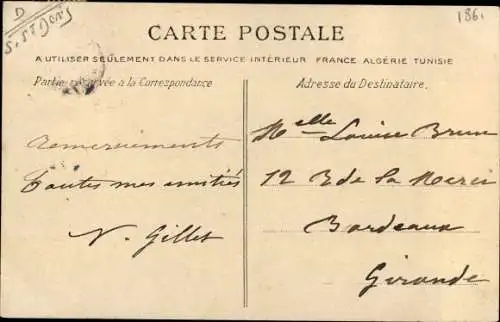 D
S. St Denis
186.
CARTE POSTALE
A UTILISER SEULEMENT DANS LE SERVICE INTÉRIEUR FRANCE ALGÉRIE TUNISIE
Partie réservée à la Correspondance
Adresse du Destinataire.
Remerciements
Toutes mes amitiés
N. Gillet
Melle Louise Brun
12 R de la Merci
Bordeaux
Gironde